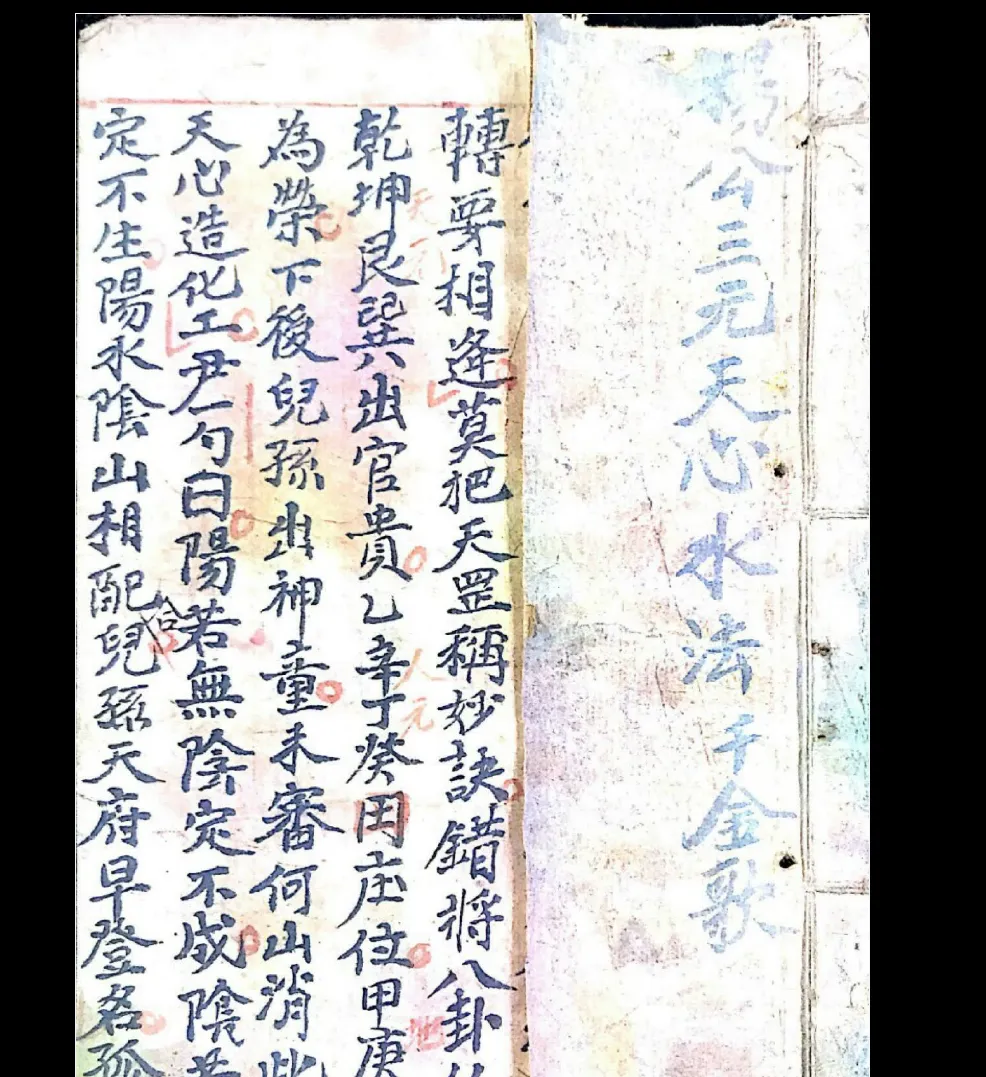 楊公三元天心水法千金歌
轉要相逢莫把天罡稱妙訣錯將八卦
乾坤艮巽出官貴乙辛丁癸田庄位甲庚
為榮下後兒孫出神童未審何山消此
天心造化工尹勺曰陽若無陰定不成陰若
定不生陽水陰山相配合兒孫天府早登名孤
天元
人元
地